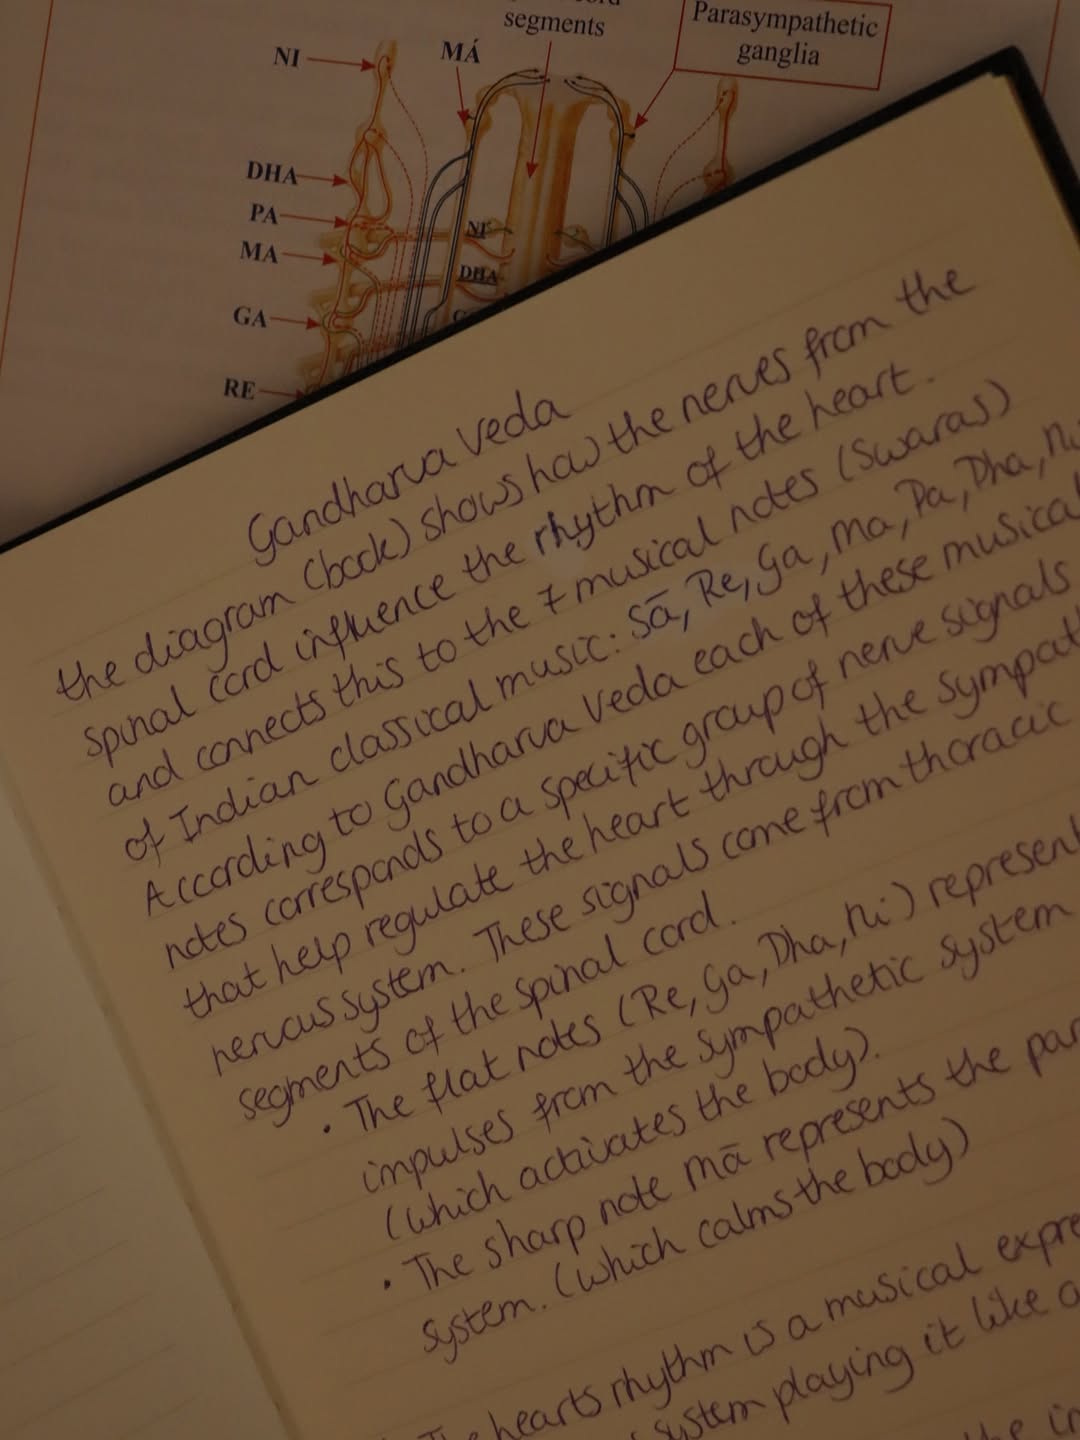 segments
Parasympathetic
ganglia
NI
MÁ
DHA
PA
MA
GA
RE
NI
DHA
Gandharva Veda
the diagram (book) shows how the nerves from the
spinal cord influence the rhythm of the heart.
and connects this to the 7 musical notes (Swaras)
of Indian classical music: Sā, Re, Ga, Ma, Pa, Dha, Ni
According to Gandharva Veda each of these musical
notes corresponds to a specific group of nerve signals
that help regulate the heart through the sympat
nervous system. These signals come from thoracic
segments of the spinal cord.
• The flat notes (Re, Ga, Dha, Ni) represent
impulses from the sympathetic system
(which activates the body).
• The sharp note mā represents the par
system. (which calms the body)
The hearts rhythm is a musical expre
system playing it like a
the in